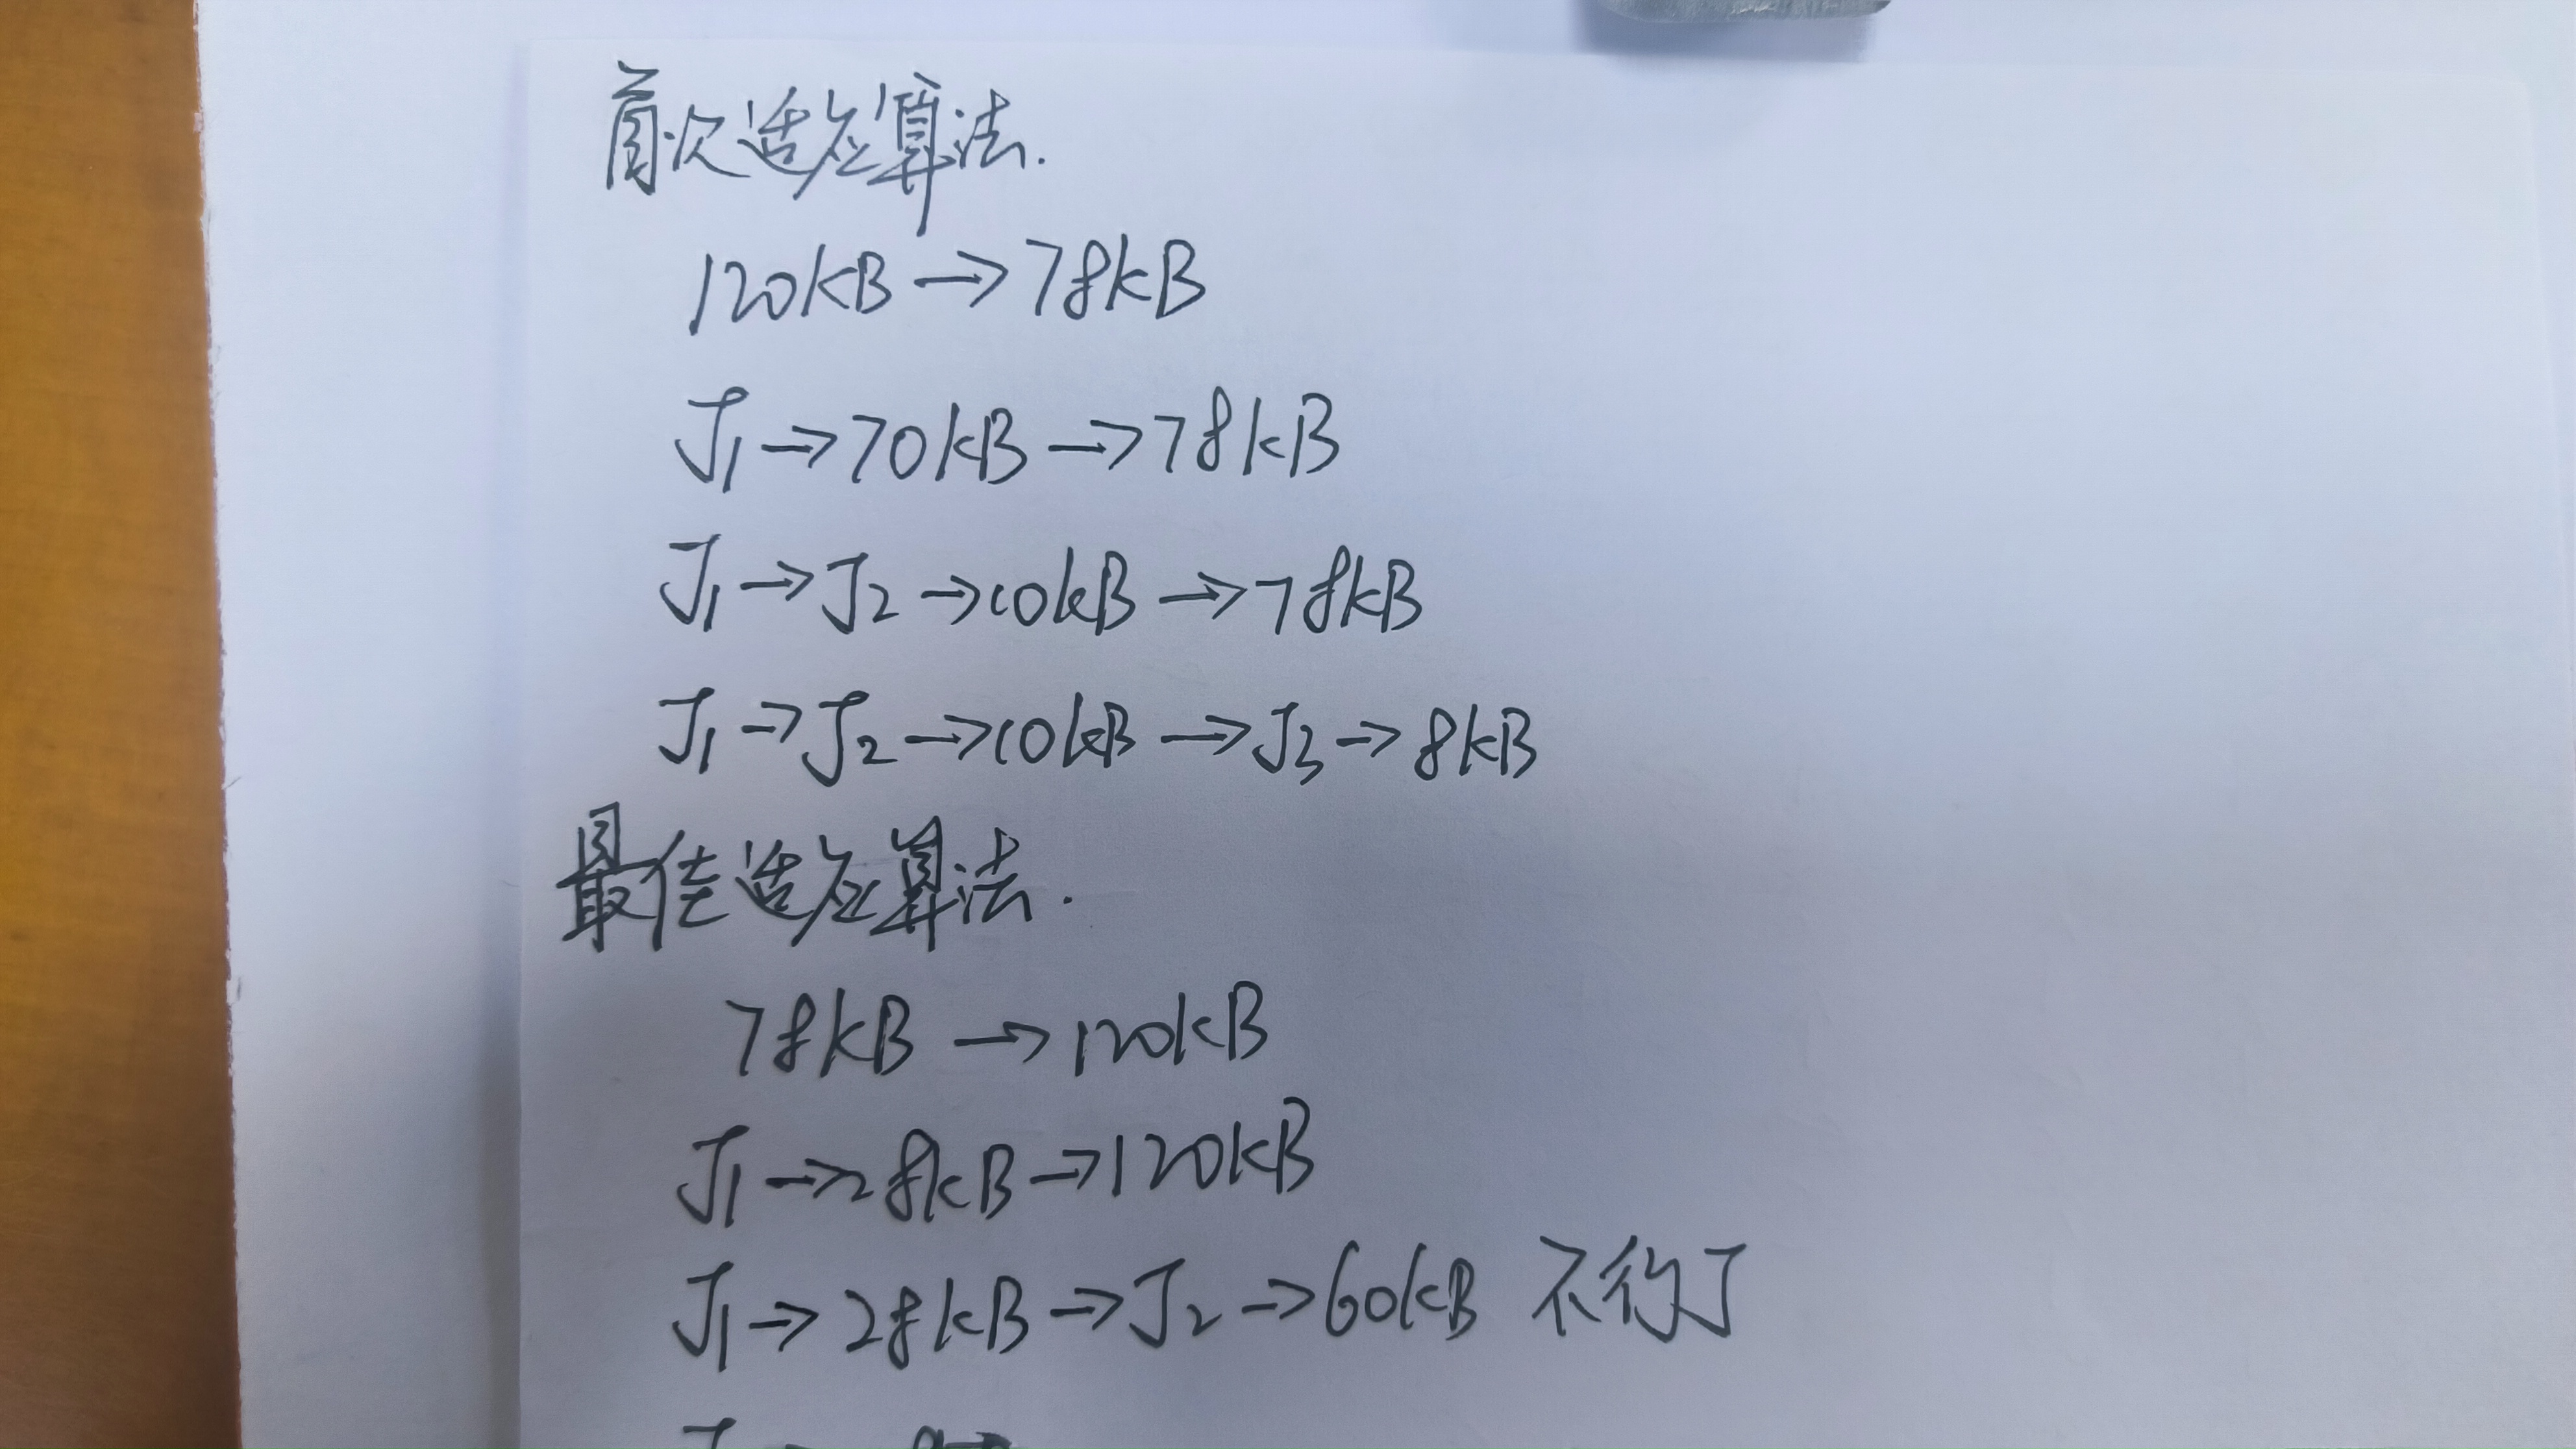 首次适应算法.
120kB→78kB
J1→70kB→78kB
J1→J2→10kB→78kB
J1→J2→10kB→J3→8kB
最佳适应算法.
78kB→120kB
J1→28kB→120kB
J1→28kB→J2→60kB 不约了